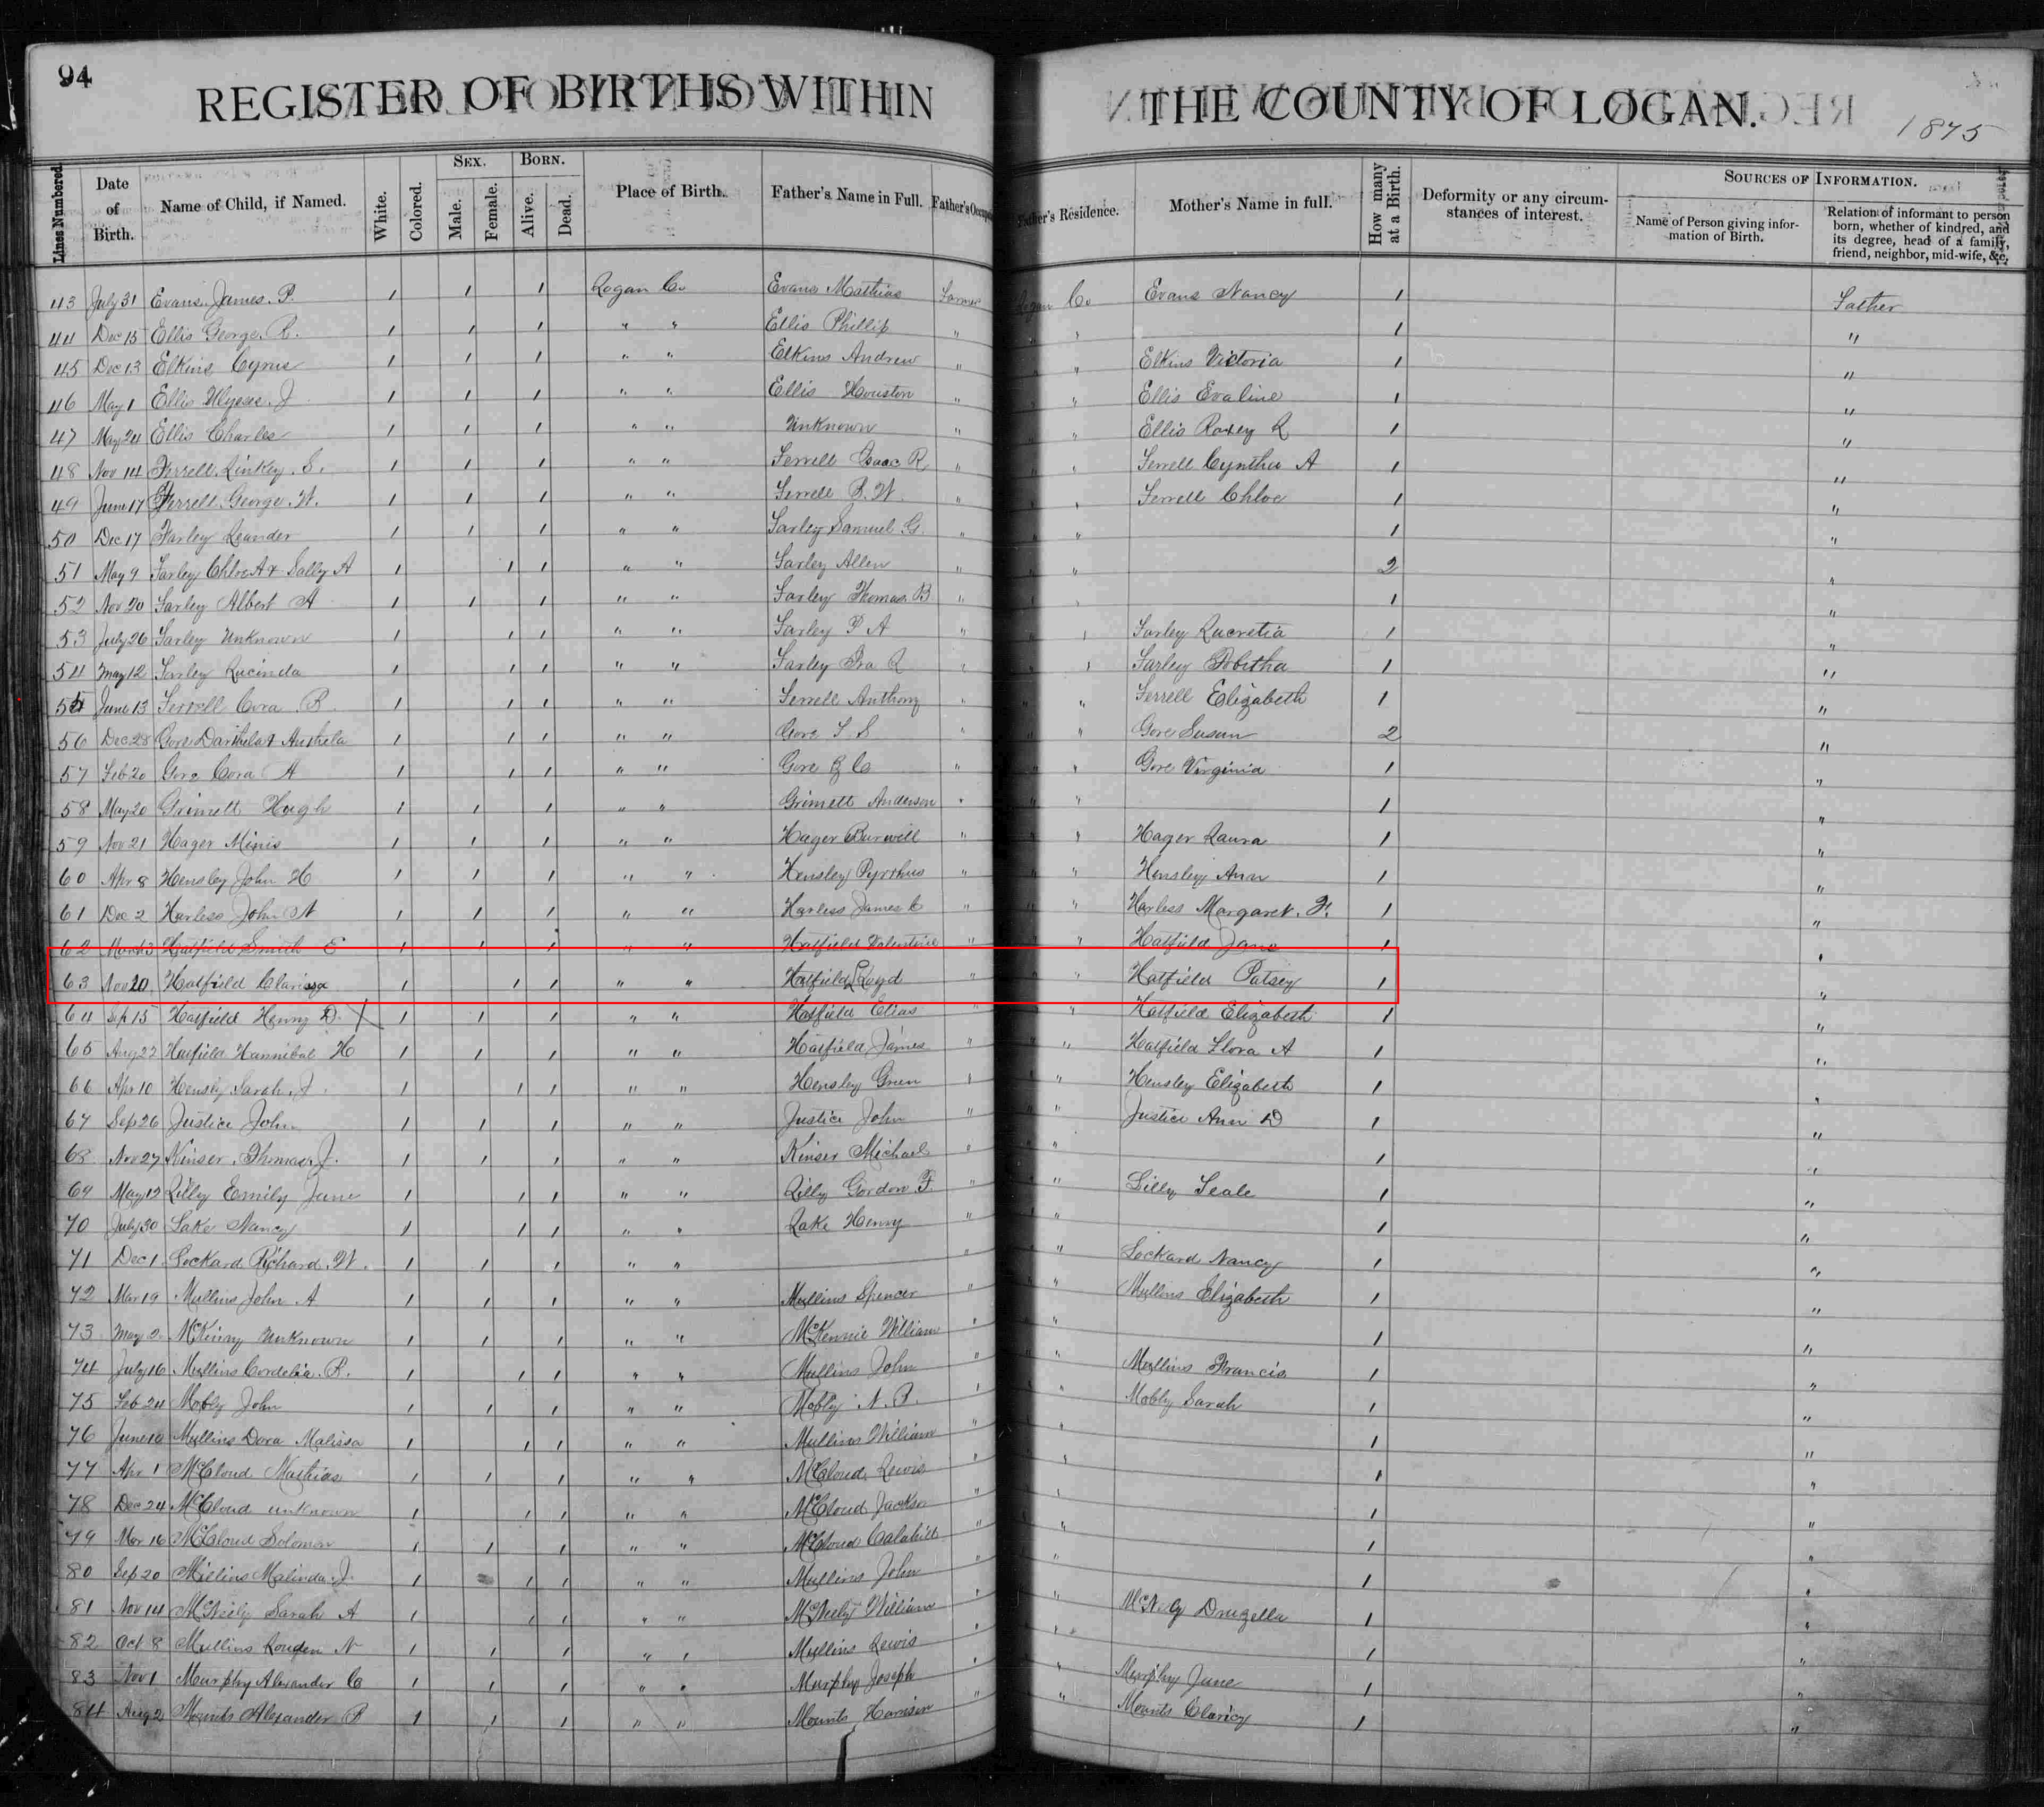 94
REGISTER OF BIRTHS WITHIN THE COUNTY OF LOGAN.
1875
Lines Numbered. Date of Birth. Name of Child, if Named. White. Colored. SEX. Male. Female. BORN. Alive. Dead. Place of Birth. Father's Name in Full. Father's Father's Residence. Mother's Name in full. How many at a Birth. Deformity or any circumstances of interest. SOURCES OF INFORMATION. Name of Person giving information of Birth. Relation of informant to person born, whether of kindred, and its degree, head of a family, friend, neighbor, mid-wife, &c.
43 July 31 Evans James. P. 1 1 1 Logan Co Evans Mathias Farmer Logan Co Evans Nancy 1 Father
44 Dec 15 Ellis George. R. 1 1 1 " " Ellis Phillip " " 1 "
45 Dec 13 Elkins Cyrus 1 1 1 " " Elkins Andrew " " Elkins Victoria 1 "
46 May 1 Ellis Ulysse. J 1 1 1 " " Ellis Houston " " Ellis Evaline 1 "
47 May 24 Ellis Charles 1 1 1 " " Unknown " " Ellis Roxey R 1 "
48 Nov 14 Ferrell Linkey. S. 1 1 1 " " Ferrell Isaac R. " " Ferrell Cynthia A 1 "
49 June 17 Ferrell George. W. 1 1 1 " " Ferrell B. W. " " Ferrell Chloe 1 "
50 Dec 17 Farley Leander 1 1 1 " " Farley Samuel G. " " 1 "
51 May 9 Farley Chloe A & Sally A 1 1 1 " " Farley Allen " " 2 "
52 Nov 20 Farley Albert A 1 1 1 " " Farley Thomas. B " " 1 "
53 July 26 Farley Unknown 1 1 1 " " Farley P A " " Farley Lucretia 1 "
54 May 12 Farley Lucinda 1 1 1 " " Farley Ira L " " Farley Tobitha 1 "
55 June 13 Ferrell Cora. B 1 1 1 " " Ferrell Anthony " " Ferrell Elizabeth 1 "
56 Dec 28 Gore & 1 1 1 " " Gore S S " " Gore Susan 2 "
57 Feb 20 Gore Cora A 1 1 1 " " Gore " " Gore Virginia 1 "
58 May 20 Grimett Hugh 1 1 1 " " Grimett Anderson " " 1 "
59 Nov 21 Hager Minis 1 1 1 " " Hager Burwell " " Hager Laura 1 "
60 Apr 8 Hensley John H 1 1 1 " " Hensley Pyrrhus " " Hensley Ann 1 "
61 Dec 2 Harless John 1 1 1 " " Harless James " " Harless Margaret. J. 1 "
62 March 3 Hatfield Smith E 1 1 1 " " Hatfield Valentine " " Hatfield Jane 1 "
63 Nov 20 Hatfield 1 1 1 " " Hatfield Loyd " " Hatfield Patsey 1 "
64 Sep 15 Hatfield Henry D. 1 1 1 " " Hatfield Elias " " Hatfield Elizabeth 1 "
65 Aug 22 Hatfield Hannibal H 1 1 1 " " Hatfield James " " Hatfield Flora A 1 "
66 Apr 10 Hensley Sarah. J. 1 1 1 " " Hensley Green " " Hensley Elizabeth 1 "
67 Sep 26 Justice John 1 1 1 " " Justice John " " Justice Ann D 1 "
68 Nov 27 Kinser Thomas. J. 1 1 1 " " Kinser Michael " " 1 "
69 May 12 Lilly Emily Jane 1 1 1 " " Lilly Gordon F. " " Lilly Leale 1 "
70 July 30 Lake Nancy 1 1 1 " " Lake Henry " " 1 "
71 Dec 1 Lockard Richard. W. 1 1 1 " " " " Lockard Nancy 1 "
72 Mar 19 Mullins John. A 1 1 1 " " Mullins Spencer " " Mullins Elizabeth 1 "
73 May 2 McKinny Unknown 1 1 1 " " McKennie William " " 1 "
74 July 16 Mullins Cordelia. B. 1 1 1 " " Mullins John " " Mullins Francis 1 "
75 Feb 24 Mobly John 1 1 1 " " Mobly N. P. " " Mobly Sarah 1 "
76 June 10 Mullins Dora Malissa 1 1 1 " " Mullins William " " 1 "
77 Apr 1 McCloud Mathias 1 1 1 " " McCloud Lewis " " 1 "
78 Dec 24 McCloud unknown 1 1 1 " " McCloud Jackson " " 1 "
79 Mar 16 McCloud Solomon 1 1 1 " " McCloud " " 1 "
80 Sep 20 Millins Malinda. J. 1 1 1 " " Mullins John " " 1 "
81 Nov 14 McNeely Sarah A 1 1 1 " " McNeely William " " Druzella 1 "
82 Oct 8 Mullins Louden N 1 1 1 " " Mullins Lewis " " 1 "
83 Nov 1 Murphy Alexander C 1 1 1 " " Murphy Joseph " " Murphy Jane 1 "
84 Aug 2 Mounts Alexander B 1 1 1 " " Mounts Harrison " " Mounts Claricy 1 "